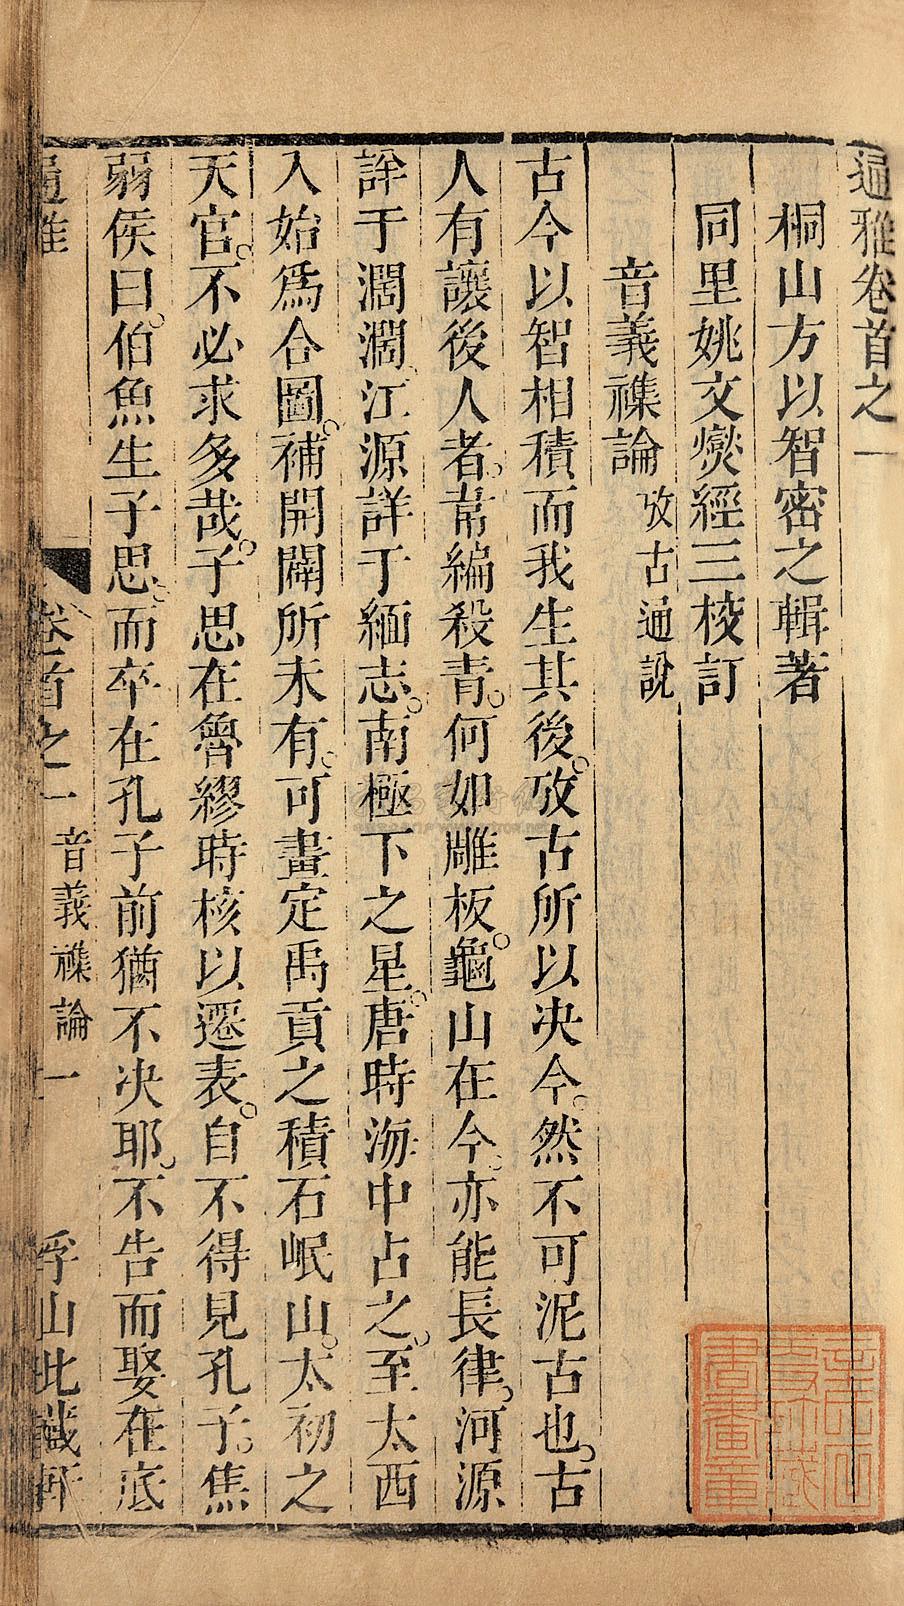 通雅卷首之一
桐山方以智密之輯著
同里姚文燮經三校訂
音義襍論 攷古通說
古今以智相積而我生其後攷古所以决今然不可泥古也古
人有讓後人者韋編殺青何如雕板龜山在今亦能長律河源
詳于濶濶江源詳于緬志南極下之星唐時海中占之至太西
入始爲合圖補開闢所未有可畫定禹貢之積石岷山太初之
天官不必求多哉子思在魯繆時核以遷表自不得見孔子焦
弱侯曰伯魚生子思而卒在孔子前猶不决耶不告而娶在底
通雅 卷首之一 音義襍論 一 浮山此藏軒